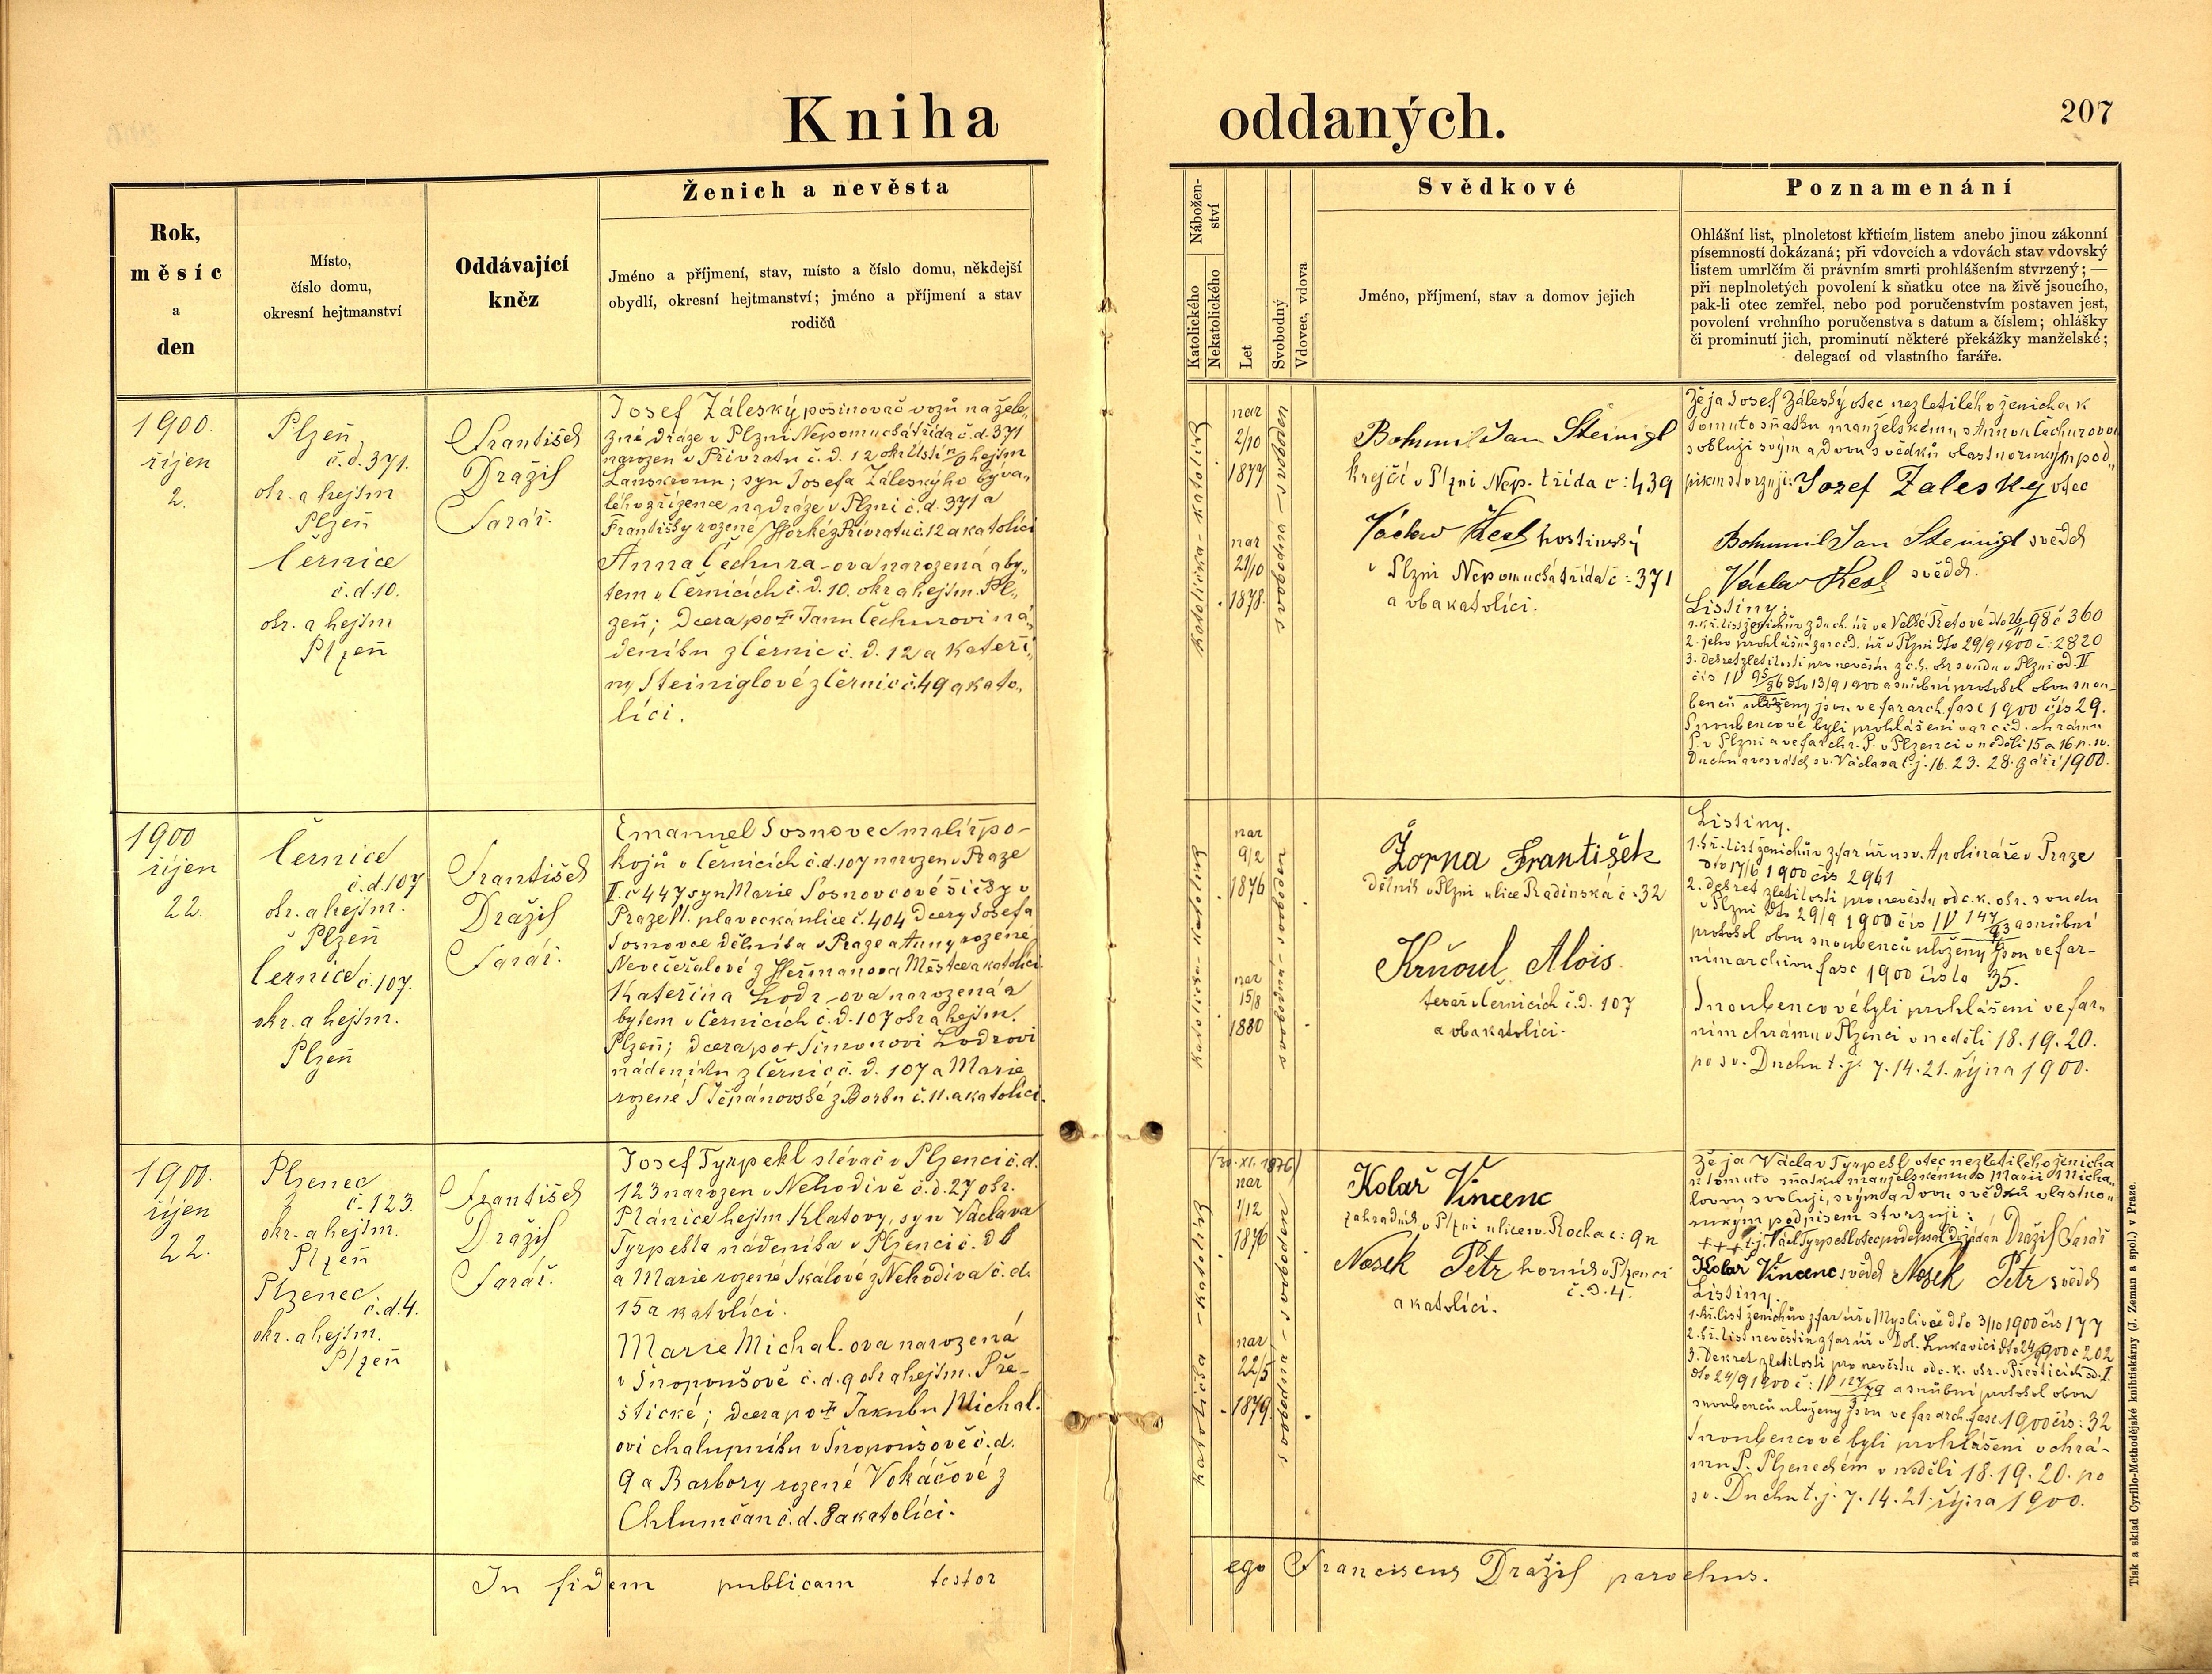 Kniha oddaných.
207
Rok, měsíc a den
Místo, číslo domu, okresní hejtmanství
Oddávající kněz
Ženich a nevěsta
Jméno a příjmení, stav, místo a číslo domu, někdejší
obydlí, okresní hejtmanství; jméno a příjmení a stav
rodičů
Nábožen-
ství
Katolického
Nekatolického
Let
Svobodný
Vdovec, vdova
Svědkové
Jméno, příjmení, stav a domov jejich
Poznamenání
Ohlášní list, plnoletost křticím listem anebo jinou zákonní
písemností dokázaná; při vdovcích a vdovách stav vdovský
listem umrlčím či právním smrti prohlášením stvrzený; —
při neplnoletých povolení k sňatku otce na živě jsoucího,
pak-li otec zemřel, nebo pod poručenstvím postaven jest,
povolení vrchního poručenstva s datum a číslem; ohlášky
či prominutí jich, prominutí některé překážky manželské;
delegací od vlastního faráře.
1900.
říjen
2.
Plzeň
č.d. 371.
okr. a hejtm
Plzeň
Černice
č.d 10.
okr. a hejtm
Plzeň
František
Drážil
Farář.
Josef Záleský pošinovač vozů na žele-
zné dráze v Plzni Nepomucká třída č.d. 371
narozen v Přívratu č.d. 12 okr Ústí n/O hejtm
Lanškroun; syn Josefa Záleského býva-
lého zřízence na dráze v Plzni č.d. 371 a
Františky rozené Horké z Přívratu č. 12 a katolíci
Anna Čechura-ova narozená a by-
tem v Černicích č.d. 10. okr a hejtm. Pl-
zeň; dcera po † Janu Čechurovi ná-
deníku z Černic č.d. 12 a Kateři-
ny Steiniglové z Černic č. 49 a kato-
líci.
katolička - katolík
nar
2/10
1877
nar
21/10
1878.
svobodna - svoboden
Bohumil Jan Steinigl
krejčí v Plzni Nep. třída č: 439
Václav Kesl hostinský
v Plzni Nepomucká třída č: 371
a oba katolíci.
Že já Josef Záleský otec nezletilého ženicha k
tomuto sňatku manželskému s Annou Čechurovou
svoluji svým a dvou svědků vlastnoručným pod-
pisem stvrzuji: Jozef Zaleský otec
Bohumil Jan Steinigl svědek
Václav Kesl svědek.
Listiny:
1. kř. list ženichův z duch. úř ve Velké Řetové dto 26/II 98 č 360
2. jeho prohlášní z arcid. úř v Plzni dto 29/9 1900 č: 2820
3. dekret zletilosti pro nevěstu z c.k. okr soudu v Plzni od. II
čís IV 95/86 dto 13/9 1900 a snubní protokol obou snou-
benců uloženy jsou ve far arch. fasc 1900 čís 29.
Snoubencové byli prohlášeni v arcid. chrámu
P. v Plzni a ve far chr. P. v Plzenci v neděli 15 a 16 p. sv.
Duchu a ve svátek sv. Václava t.j. 16. 23. 28. září 1900.
1900
říjen
22.
Černice
č.d. 107
okr. a hejtm.
v Plzeň
Černice č. 107.
okr. a hejtm.
Plzeň
František
Drážil
Farář.
Emanuel Sosnovec malíř po-
kojů v Černicích č.d. 107 narozen v Praze
II. č 447 syn Marie Sosnovcové šičky v
Praze VI. plavecká ulice č. 404 dcery Josefa
Sosnovce dělníka v Praze a Anny rozené
Nevečeřalové z Heřmanova Městce a katolíci
Kateřina Lodr-ova narozená a
bytem v Černicích č.d. 107 okr a hejtm.
Plzeň; dcera po † Šimonovi Lodrovi
nádeníku z Černic č.d. 107 a Marie
rozené Štěpánovské z Borku č. 11. a katolíci.
katolička - katolík
nar
9/2
1876
nar
15/8
1880
svobodná - svoboden
Žorna František
dělník v Plzni ulice Radinská č: 32
Krňoul Alois
tesař v Černicích č.d. 107
a oba katolíci.
Listiny.
1. kř. list ženichův z far úř u sv. Apolináře v Praze
dto 17/6 1900 čís 2961
2. dekret zletilosti pro nevěstu od c.k. okr. soudu
v Plzni dto 29/9 1900 čís IV 147/93 a snubní
protokol obou snoubenců uloženy jsou ve far-
ním archivu fasc 1900 čísla 35.
Snoubencové byli prohlášeni ve far-
ním chrámu v Plzenci v neděli 18. 19. 20.
po sv. Duchu t.j. 7. 14. 21. října 1900.
1900.
říjen
22.
Plzenec
č. 123.
okr. a hejtm.
Plzeň
Plzenec
č.d. 4.
okr. a hejtm.
Plzeň
František
Drážil
Farář.
Josef Tyrpekl slévač v Plzenci č.d.
123 narozen v Nehodivě č.d. 27 okr.
Plánice hejtm Klatovy, syn Václava
Tyrpekla nádeníka v Plzenci č. d 6
a Marie rozené Skalové z Nehodiva č.d.
15 a katolíci.
Marie Michal-ova narozená
v Snopoušově č.d. 9 okr a hejtm. Pře-
štické; dcera po † Jakubu Michal-
ovi chalupníku v Snopoušově č.d.
9 a Barbory rozené Vokáčové z
Chlumčan č.d. 8 a katolíci.
katolička - katolík
(30. XI. 1876)
nar
1/12
1876
nar
22/5
1879
svobodna - svoboden
Kolař Vincenc
zahradník v Plzni ulice sv. Rocha č: 9n
Nosek Petr horník v Plzenci
č.d. 4.
a katolíci.
Že já Václav Tyrpekl otec nezletilého ženicha
k tomuto sňatku manželskému s Marií Micha-
lovou svoluji, svým a dvou svědků vlastno-
ručným podpisem stvrzuji:
+++ t.j. Václ Tyrpekl otec podepsal dožádán Drážil Farář
Kolař Vincenc svědek Nosek Petr svědek
Listiny.
1. kř. list ženichův z far úř v Myslivě dto 3/10 1900 čís 177
2. kř. list nevěstin z far úř v Dol. Lukavici dto 24/9 1900 č 202
3. Dekret zletilosti pro nevěstu od c.k. okr. v Přešticích od. I
dto 24/9 1900 č: IV 127/79 a snubní protokol obou
snoubenců uloženy jsou ve far arch. fasc. 1900 čís: 32
Snoubencové byli prohlášeni v chrá-
mu P. Plzeneckém v neděli 18. 19. 20. po
sv. Duchu t.j. 7. 14. 21. října 1900.
In fidem publicam testor ego Franciscus Drážil parochus.
Tisk a sklad Cyrillo-Methodějské knihtiskárny (J. Zeman a spol.) v Praze.